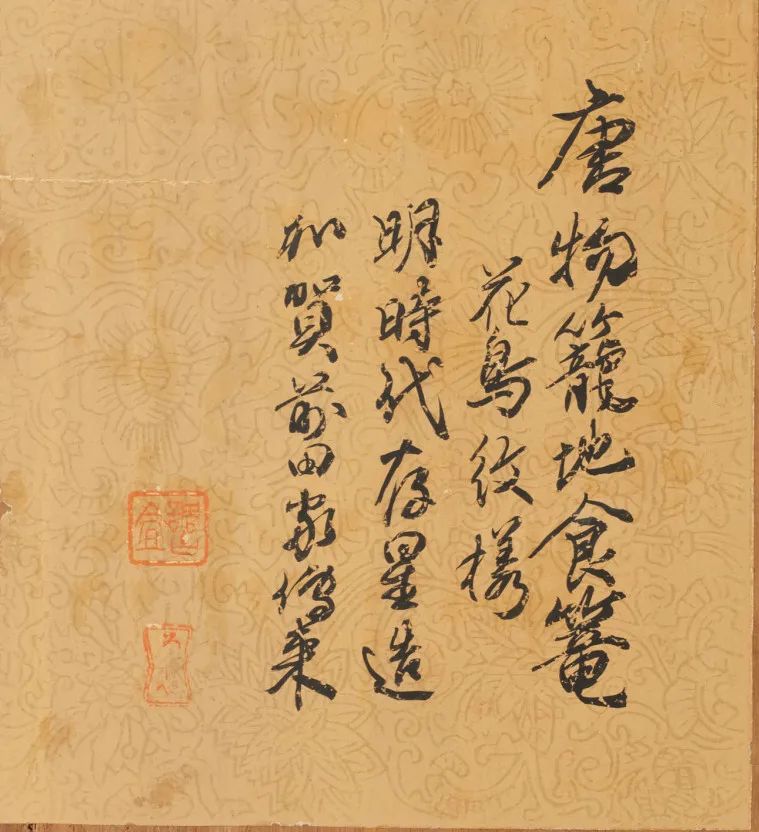 唐物籠地食篭
花鳥紋様
明時代存星造
加賀前田家傳来